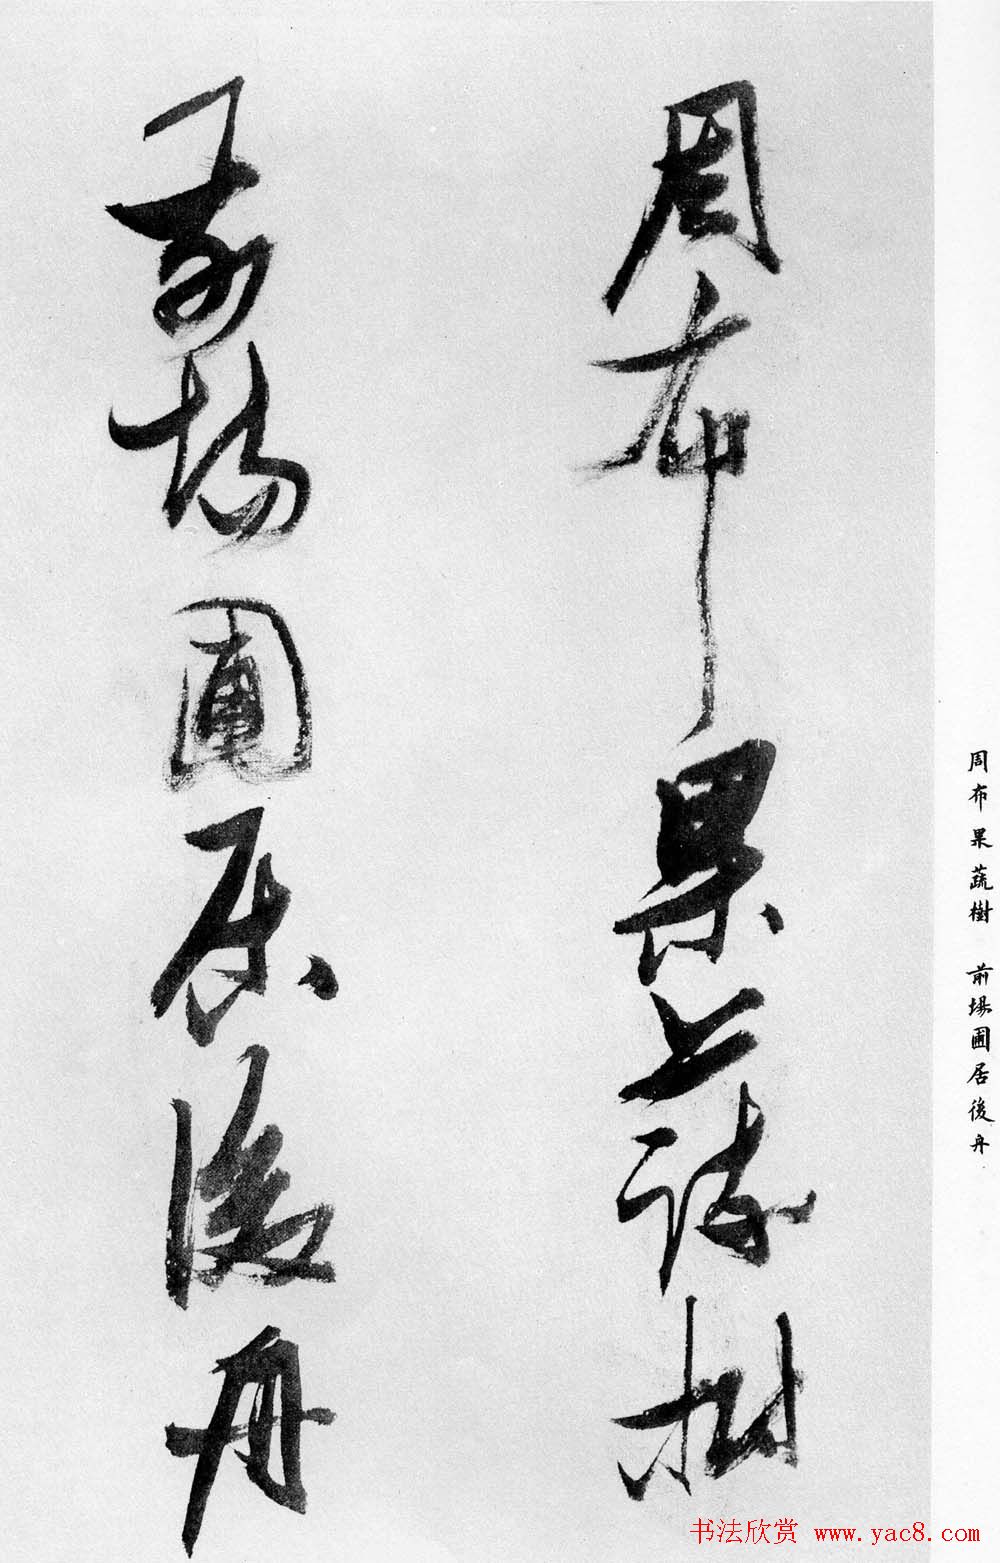 周布果蔬樹
前場圃居後舟
周布果蔬樹 前場圃居後舟
书法欣赏 www.yac8.com